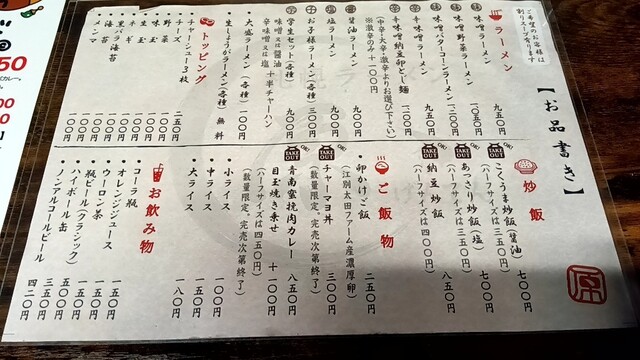 【お品書き】
ご希望のお客様は
割りスープ有ります
ラーメン
味噌ラーメン 九五〇円
味噌野菜ラーメン 一〇五〇円
味噌バターコーンラーメン 一二〇〇円
辛味噌ラーメン 九五〇円
辛味噌納豆卵とじ麺 一二〇〇円
(中辛・大辛・激辛よりお選び下さい)
※激辛のみ+一〇〇円
醤油ラーメン 九〇〇円
塩ラーメン 九〇〇円
お子様ラーメン(各種) 三〇〇円
学生セット(各種) 九〇〇円
味噌又は醤油
辛味噌又は塩
+半チャーハン
大盛ラーメン(各種) 一〇〇円
生しょうがラーメン(各種) 無料
トッピング
チャーシュー3枚 二五〇円
チーズ 一〇〇円
野菜 一〇〇円
味玉 一〇〇円
生玉 一〇〇円
ネギ 一〇〇円
黒バラ海苔 一〇〇円
海苔 一〇〇円
メンマ 一〇〇円
炒飯
こくうま炒飯(醤油) 七〇〇円
(ハーフサイズは三五〇円)
あっさり炒飯(塩) 七〇〇円
(ハーフサイズは三五〇円)
納豆炒飯 八五〇円
(ハーフサイズは四〇〇円)
TAKE OUT OK!
TAKE OUT OK!
TAKE OUT OK!
ご飯物
卵かけご飯 二五〇円
(江別太田ファーム産濃厚卵)
TAKE OUT OK!
チャーマヨ丼 三〇〇円
(数量限定。完売次第終了)
青南蛮挽肉カレー 八五〇円
目玉焼き乗せ +一〇〇円
(ハーフサイズは四五〇円)
(数量限定。完売次第終了)
小ライス 一〇〇円
中ライス 一五〇円
大ライス 一八〇円
お飲み物
コーラ瓶 一五〇円
オレンジジュース 一五〇円
ウーロン茶 一五〇円
瓶ビール(クラシック) 五〇〇円
ハイボール缶 三五〇円
ノンアルコールビール 四二〇円
源
50